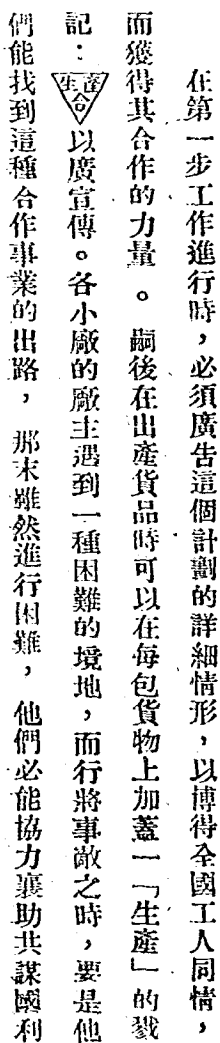 在第一步工作進行時，必須廣告這個計劃的詳細情形，以博得全國工人同情，
而獲得其合作的力量。嗣後在出產貨品時可以在每包貨物上加蓋一「生產」的戳
記：生產合以廣宣傳。各小廠的廠主遇到一種困難的境地，而行將事敵之時，要是他
們能找到這種合作事業的出路，那末雖然進行困難，他們必能協力襄助共謀國利